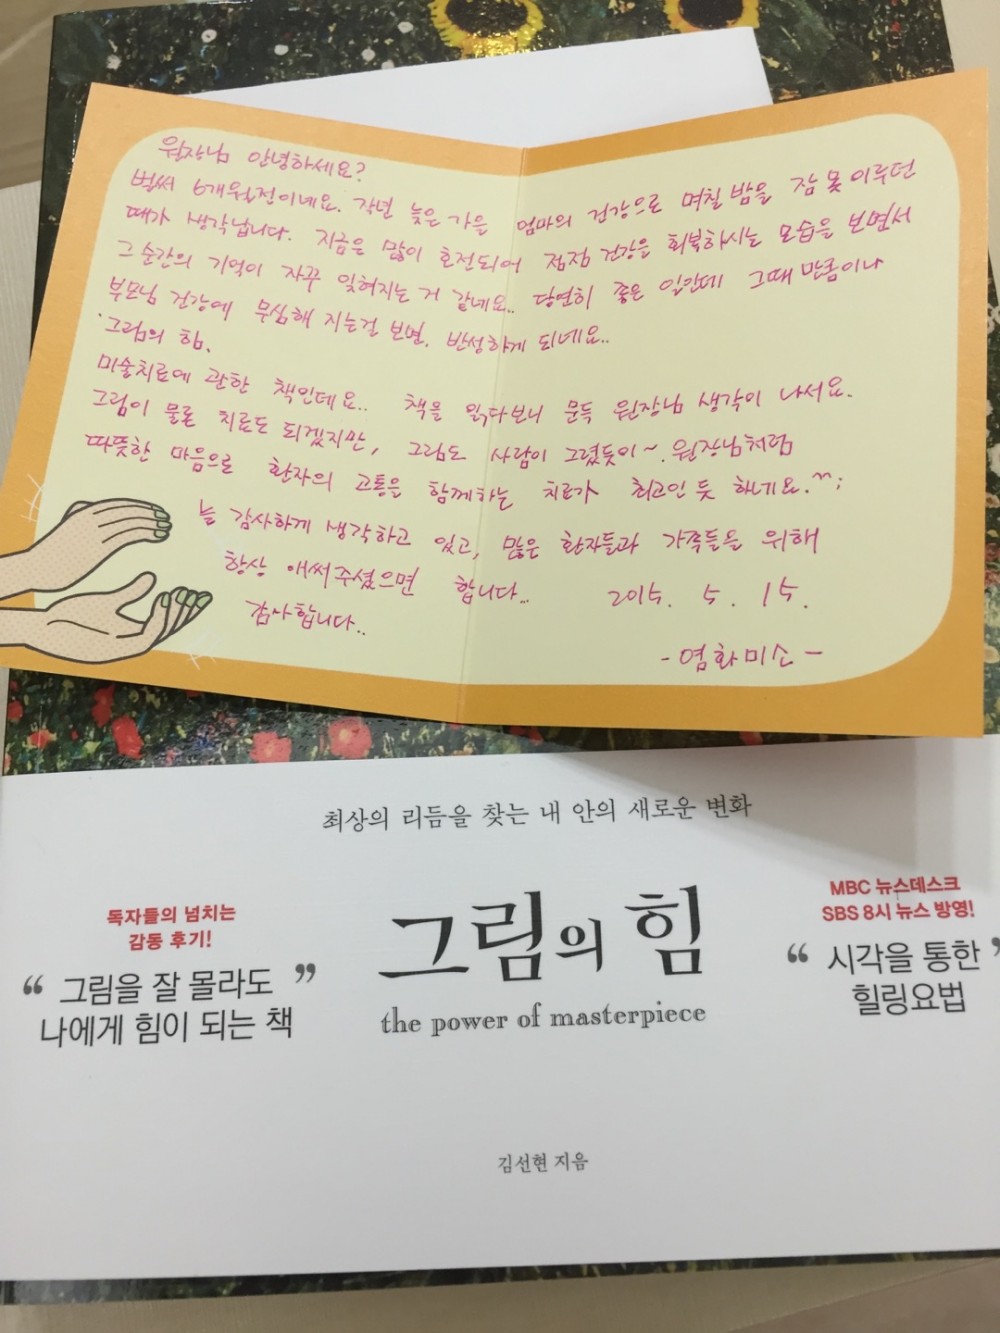 원장님 안녕하세요?
벌써 6개월전이네요. 작년 늦은 가을 엄마의 건강으로 며칠밤을 잠 못 이루던
때가 생각납니다. 지금은 많이 호전되어 점점 건강을 회복하시는 모습을 보면서
그 순간의 기억이 자꾸 잊혀지는 거 같네요.. 당연히 좋은 일인데 그때 만큼이나
부모님 건강에 무심해 지는걸 보면. 반성하게 되네요..
'그림의 힘.
미술치료에 관한 책인데요.. 책을 읽다보니 문득 원장님 생각이 나서요.
그림이 물론 치료도 되겠지만, 그림도 사람이 그렸듯이~. 원장님처럼
따뜻한 마음으로 환자의 고통을 함께하는 치료가 최고인 듯 하네요.^^;
늘 감사하게 생각하고 있고, 많은 환자들과 가족들을 위해
항상 애써주셨으면 합니다... 2015. 5. 15.
감사합니다..
- 염화미소 -
최상의 리듬을 찾는 내 안의 새로운 변화
독자들의 넘치는
감동 후기!
“ 그림을 잘 몰라도 ”
나에게 힘이 되는 책
그림의 힘
the power of masterpiece
MBC 뉴스데스크
SBS 8시 뉴스 방영!
“ 시각을 통한 ”
힐링요법
김선현 지음